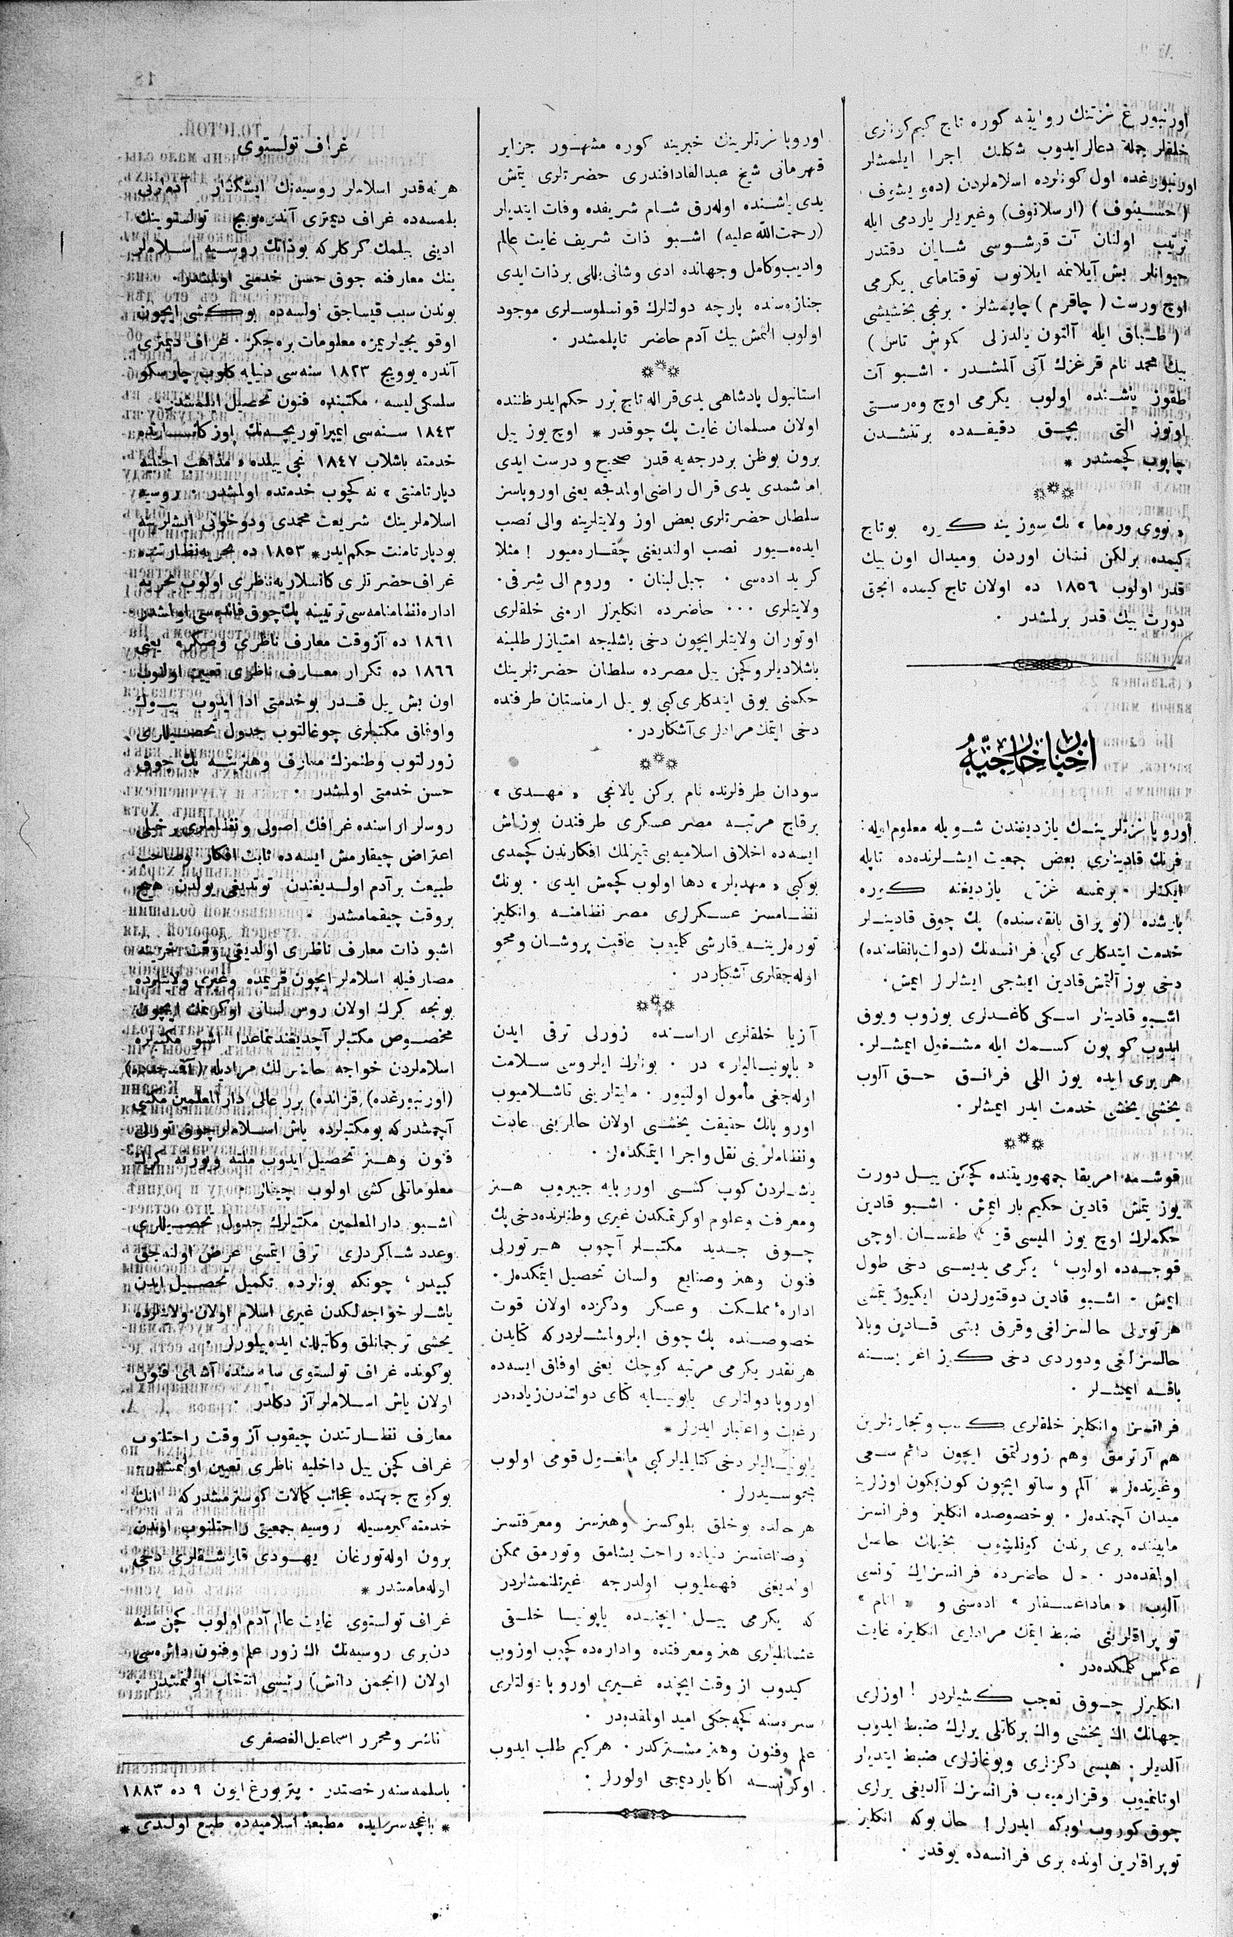 اورنبورغ غزتنك روایتنه كوره تاج كیم كونلری
خلقلر جملة دعالر ایدوب شكلك اجرا ایلمشلر
اورنبورغده اول كونلرده اسلاملردن (ده‌ویشوف)
(حسینوف) (ارسلانوف) وغیریلر یاردمی ایله
ترتیب اولنان آت قرشوسی شایان دقتدر
حیوانلر بش آیلانمه ایلانوب توقتامای یكرمی
اوچ ورست (چاقرم) چاپمشلر. برنجی بخششی
(طباق ایله آلتون یالدزلی كوش تاس)
بیك محمد نام قرغزك آتی آلمشدر. اشبو آت
طقوز یاشنده اولوب یكرمی اوچ وه‌رستی
اوتوز التی بچق دقیقه‌ده برتنشدن
چاپوب كچمشدر *
« نووی وره‌ما » نك سوزینه كوره بوتاج
كیمده برلكن نشان اوردن ومیدال اون بیك
قدر اولوب ١٨٥٦ ده اولان تاج كیمده انجق
دورت بیك قدر برلمشدر.
اخبار خارجیه
اوروپا غزتلرینك یازدیغندن شویله معلوم اوله:
فرنك قادینلری بعض جمعیت ایشلرنده‌ده تاپله
ایكنلر. برنمسه غزتی یازدیغنه كوره
پارشده (توپراق بانقه‌سنده) پك چوق قادینلر
خدمت ایتدكاری كبی فرانسه‌نك (دولت بانقاسنده)
دخی یوز آلتمش قادین ایمیشجی ایشلرلر ایمش.
اشبو قادینلر اسكی كاغدلری بوزوب ویوق
ایدوب كوپون كسمك ایله مشغیل ایمشلر.
هربری ایده یوز اللی فرانق حق آلوب
یخشی یخشی خدمت ایدر ایمشلر.
قوشمه امریقا جمهوریتنده كچكن ییل دورت
یوز یتمش قادین حكیم بار ایمش. اشبو قادین
حكملرك اوچ یوز الیسی قز، طقسان اوچی
قوجه‌ده اولوب، یكرمی یدیسی دخی طول
ایمش. اشبو قادین دوقتورلردن ایكیوز یتمشی
هرتورلی حالسزلقی وقرق بشی قادین وبالا
حالسزلقی ودوردی دخی كوز اغریسنه
باقه ایمشلر.
فرانسز وانكلیز خلقلری كسب وتجارتلرین
هم آرترمق وهم زورلتمق ایچون دائم سعی
وغیرتده‌لر * آلم وساتو ایچون كون‌بكون اوزلرینه
میدان آچمنده‌لر. بوخصوصده انكلیز وفرانسز
مابیننده بری برندن كونلشوب بخیلك حاصل
اولمقده‌در. حال حاضرده فرانسزلرك تونسی
آلوب « ماداغسفار » اده‌سنی و « انام »
توپراقلرینی ضبط ایتمك مرادلری انكلیزه غایت
عكس كلمكده‌در.
انكلیزلر چوق تعجب كشیلردر! اوزلری
جهانك الك یخشی والك بركاتلی یرلرك ضبط ایدوب
آلدیلر. هپسی دكزلری وبوغازلری ضبط ایتدیلر
اوتانمیوب وقزارمیوب فرانسزك آلدیغی یرلری
چوق كوروب اوپكه ایدرلر! حال بوكه انكلیز
توپراقلرین اونده بری فرانسه‌ده یوقدر.
اوروپا غزتلرینك خبرینه كوره مشهور جزایر
قهرمانی شیخ عبدالقادافندی حضرتلری یتمش
یدی یاشنده اوله‌رق شام شریفده وفات ایتدیلر
(رحمت‌الله علیه) اشبو ذات شریف غایت عالم
وادیب وكامل وجهانده ادی وشانی بللی برذات ایدی
جنازه‌سنده پارچه دولتلرك قونسلوسلری موجود
اولوب التمش بیك آدم حاضر تاپلمشدر.
استانبول پادشاهی یدی قراله تاج برر حكم ایدر ظننده
اولان مسلمان غایت پك چوقدر * اوچ یوز ییل
برون بوظن بردرجه‌یه قدر صحیح و درست ایدی
اما شمدی یدی قرال راضی اولمدقجه یعنی اوروپاسز
سلطان حضرتلری بعض اوز ولایتلرینه والی نصب
ایده‌میور نصب اولندیغنی چقاره‌میور! مثلا
كرید اده‌سی. جبل لبنان. وروم الی شرقی.
ولایتلری... حاضرده انكلیزلر ارمنی خلقلری
اوتوران ولایتلر ایچون دخی باشلیجه امتیازلر طلبنه
باشلادیلر وكچن ییل مصرده سلطان حضرتلرینك
حكمنی یوق ایتدكاری كبی بو ییل ارمنستان طرفنده
دخی ایتمك مرادلری آشكاردر.
سودان طرفلرنده نام برکن یالانجی « مهدی »
برقاچ مرتبه مصر عسكری طرفندن بوزلش
ایسه‌ده اخلاق اسلامیه‌یی تمیزلمك افكارندن كچمدی
بوكبی « مهدیلر » دها اولوب كچمش ایدی. بونك
نظامسز عسكرلری مصر نظامنه وانكلیز
توره‌لرینه قارشی كلیوب عاقبت پروشان ومحو
اوله‌جقلری آشكاردر.
آزیا خلقلری اراسنده زورلی ترقی ایدن
« یاپونیالیلر » در. بونلرك ایلروسی سلامت
اوله‌جغی مأمول اولنیور. ملیتلرینی تاشلامیوب
اوروپانك حقیقت یخشی اولان حالرینی عادت
ونظاملرینی نقل واجرا ایتمكده‌لر.
یشلردن كوپ كشی اوروپایه جیبروب هنر
ومعرفت وعلوم اوكرتمكدن غیری وطنلرنده دخی پك
چوق جدید مكتبلر آچوب هرتورلی
فنون وهنر وصنایع ولسان تحصیل ایتمكده‌لر.
اداره‌ء مملكت وعسكر ودكزده اولان قوت
خصوصنده پك چوق ایلرولمشلردر كه كتایدن
هرنقدر یكرمی مرتبه كوچك یعنی اوفاق ایسه‌ده
اوروپا دولتلری یاپونیایه كتای دولتندن زیاده‌در
رغبت واعتبار ایدرلر *
یاپونیالیلر دخی كتایلیلر كبی مانغول قومی اولوب
مجوسیدرلر.
هرحالده بوخلق بلوكسز وهنرسز ومعرفتسز
وصناعتسز دنیاده راحت یشامق وتورمق ممكن
اولدیغنی فهملیوب اولدرجه غیرتلنمشلردر
كه یكرمی ییل ایچنده یاپونیا خلقی
عثمانلیلری هنر ومعرفتده واداره‌ده كچوب اوزوب
كیدوب از وقت ایچنده غیری اوروپا دولتلری
سره‌سنه كچه‌جكی امید اولمقده‌در.
علم وفنون وهنر مشتركدر. هركیم طلب ایدوب
اوكرنسه اكا یاردیمجی اولورلر.
غراف تولستوی
هر نه‌قدر اسلاملر روسیه‌نك ایشكنار آدملرنی
بلمسه‌ده غراف دیمتری آندره‌یویچ تولستوینك
ادینی بیلمك كركلركه بوذاتك روسیه اسلاملر
ینك معارفنه چوق حسن خدمتی اولمشدر!
بوندن سبب قیساجق اولسه‌ده بوكشی ایچون
اوقویجیلریمزه معلومات بره‌جكز. غراف دیمتری
آندره یوویچ ١٨٢٣ سنه‌سی دنیایه كلوب چارسكو
سلسكی لیسه مكتبنده فنون تحصیل ایلمشدر.
١٨٤٣ سنه‌سی ایمپراتوریچه‌نك اوز كانسلارنده
خدمته باشلاب ١٨٤٧ نجی ییلده « مذاهب اجنبیه
دپارتامنتی » نه كچوب خدمتده اولمشدر. روسیه
اسلاملرینك شریعت محمدی ودوخونی ایشلرینه
بودپارتامنت حكم ایدر * ١٨٥٣ ده بحریه نظارتنده
غراف حضرتلری كانسلاریه ناظری اولوب بحریه
اداره نظامنامه‌سی ترتیبنه پك چوق فائده‌سی اولمشدر
١٨٦١ ده آز وقت معارف ناظری وصكره یعنی
١٨٦٦ ده تكرار معارف ناظری تعیین اولنوب
اون بش ییل قدر بوخدمتی ادا ایدوب بیوك
واوفاق مكتبلری چوغالتوب جدول تحصیللری
زورلتوب وطنمزك معارف وهنرینه پك چوق
حسن خدمتی اولمشدر.
روسلر اراسنده غرافك اصولی ونظاملری خیلی
اعتراض چیقارمش ایسه‌ده ثابت افكار وصاحب
طبیعت برآدم اولدیغندن توتدیغی یولدن هیچ
بروقت چیقمامشدر.
اشبو ذات معارف ناظری اولدیغی وقت خزینه
مصارفیله اسلاملر ایچون قریمده وغیری ولایتلرده
بونجه كرك اولان روس لسانی اوكرنمك ایچون
مخصوص مكتبلر آچدیغندن ماعدا اشبو مكتبلره
اسلاملردن خواجه حاضرلمك مرادیله (آقمسجدده)
(اورنبورغده) (قزانده) برر عالی دارالمعلمین مكتبی
آچمشدركه بومكتبلرده یاش اسلاملر چوق تورلی
فنون وهنر تحصیل ایدوب ملته ویورته كرك
معلوماتلی كشی اولوب چیقار.
اشبو دارالمعلمین مكتبلرك جدول تحصیللری
وعدد شاكردلری ترقی ایتمسی عرض اولنه‌جق
كبیدر، چونكه بونلرده تكمیل تحصیل ایدن
یاشلر خواجه‌لكدن غیری اسلام اولان ولایتلرده
یخشی ترجمانلق وكاتبلك ایده‌بیلورلر.
بوكونده غراف تولستوی سایه‌سنده آشنای فنون
اولان یاش اسلاملر آز دكلدر.
معارف نظارتندن چیقوب آز وقت راحتلنوب
غراف كچن ییل داخلیه ناظری تعیین اولنمشدر
بوكوچ جهتده عجائب كمالات كوسترمشدركه انك
خدمته كیرمسیله روسیه جمعیتی راحتلنوب اوندن
برون اوله‌تورغان یهودی قارشقلری دخی
اوله‌مامشدر *
غراف تولستوی غایت عالم آدم اولوب كچن سنه
دن‌بری روسیه‌نك الك زور علم وفنون دائره‌سی
اولان (انجمن دانش) رئیسی انتخاب اولنمشدر.
ناشر ومحرر اسماعیل الغصفری
باسلمه‌سنه رخصتدر. پتربورغ ایون ٩ ده ١٨٨٣
* باغچه‌سرایده مطبعه‌ء اسلامیه‌ده طبع اولندی *